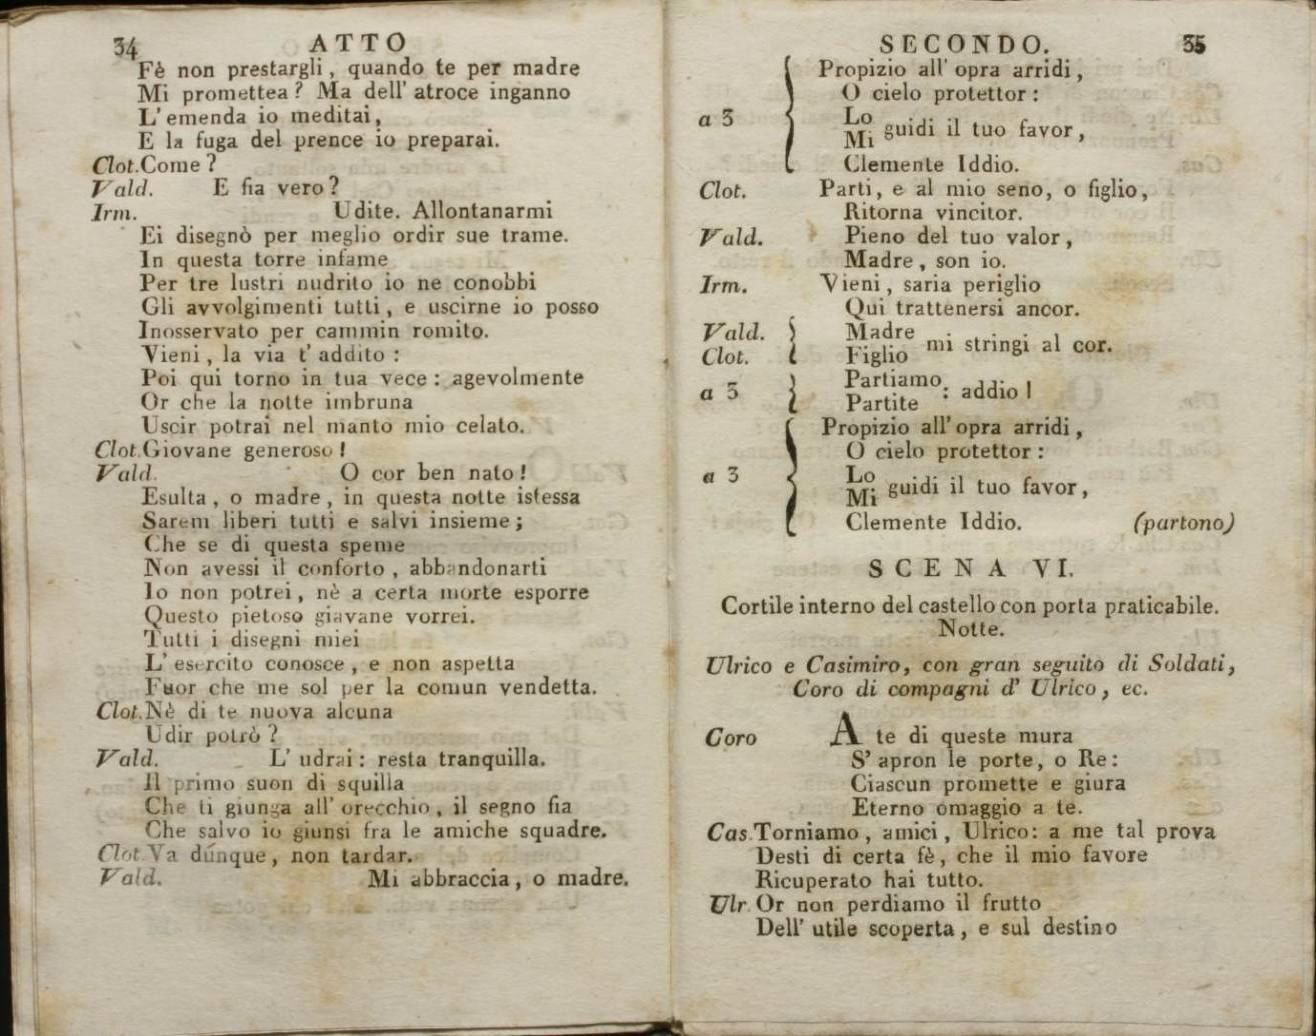 34 ATTO
Fè non prestargli, quando te per madre
Mi promettea? Ma dell' atroce inganno
L' emenda io meditai,
E la fuga del prence io preparai.
Clot. Come?
Vald. E fia vero?
Irm. Udite. Allontanarmi
Ei disegnò per meglio ordir sue trame.
In questa torre infame
Per tre lustri nudrito io ne conobbi
Gli avvolgimenti tutti, e uscirne io posso
Inosservato per cammin romito.
Vieni, la via t' addito:
Poi qui torno in tua vece: agevolmente
Or che la notte imbruna
Uscir potrai nel manto mio celato.
Clot. Giovane generoso!
Vald. O cor ben nato!
Esulta, o madre, in questa notte istessa
Sarem liberi tutti e salvi insieme;
Che se di questa speme
Non avessi il conforto, abbandonarti
Io non potrei, nè a certa morte esporre
Questo pietoso giavane vorrei.
Tutti i disegni miei
L' esercito conosce, e non aspetta
Fuor che me sol per la comun vendetta.
Clot. Nè di te nuova alcuna
Udir potrò?
Vald. L' udrai: resta tranquilla.
Il primo suon di squilla
Che ti giunga all' orecchio, il segno fia
Che salvo io giunsi fra le amiche squadre.
Clot. Va dunque, non tardar.
Vald. Mi abbraccia, o madre.
SECONDO. 35
Propizio all' opra arridi,
O cielo protettor:
a 3
Lo
Mi guidi il tuo favor,
Clemente Iddio.
Clot. Parti, e al mio seno, o figlio,
Ritorna vincitor.
Vald. Pieno del tuo valor,
Madre, son io.
Irm. Vieni, saria periglio
Qui trattenersi ancor.
Vald. Madre
Clot. Figlio mi stringi al cor.
a 3 Partiamo
Partite : addio!
Propizio all' opra arridi,
O cielo protettor:
a 3 Lo
Mi guidi il tuo favor,
Clemente Iddio. (partono)
SCENA VI.
Cortile interno del castello con porta praticabile.
Notte.
Ulrico e Casimiro, con gran seguito di Soldati,
Coro di compagni d' Ulrico, ec.
Coro A te di queste mura
S' apron le porte, o Re:
Ciascun promette e giura
Eterno omaggio a te.
Cas. Torniamo, amici, Ulrico: a me tal prova
Desti di certa fè, che il mio favore
Ricuperato hai tutto.
Ulr. Or non perdiamo il frutto
Dell' utile scoperta, e sul destino